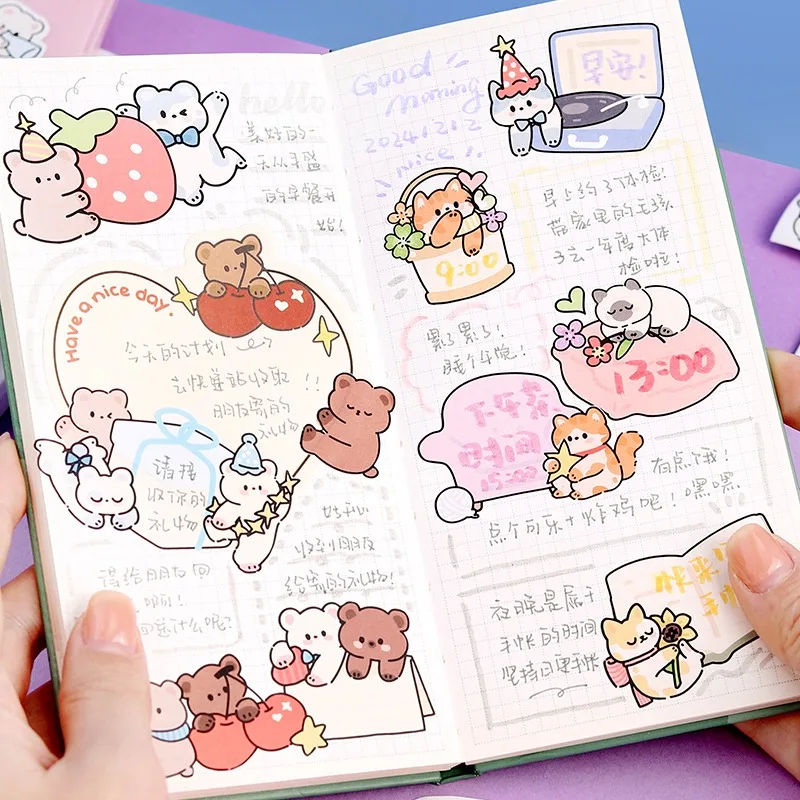 hello
美好的一
天从丰盛
的早餐开
始!
Have a nice day.
今天的计划
去快递站收取
朋友寄的
礼物
!!
请接
收你的
礼物
好开心
收到朋友
给寄的礼物!
得给朋友回
啊!
回送什么呢?
Good
morning
2024.12.12
nice!
早安!
早上约了体检!
带家里的毛孩
子去一年度大体
检啦!
9:00
累了累了!
睡个午觉!
13:00
下午茶
时间
15:00
有点饿!
点个可乐+炸鸡吧!嘿嘿
夜晚是属于
手帐的时间
坚持日更手帐
快来
手帐